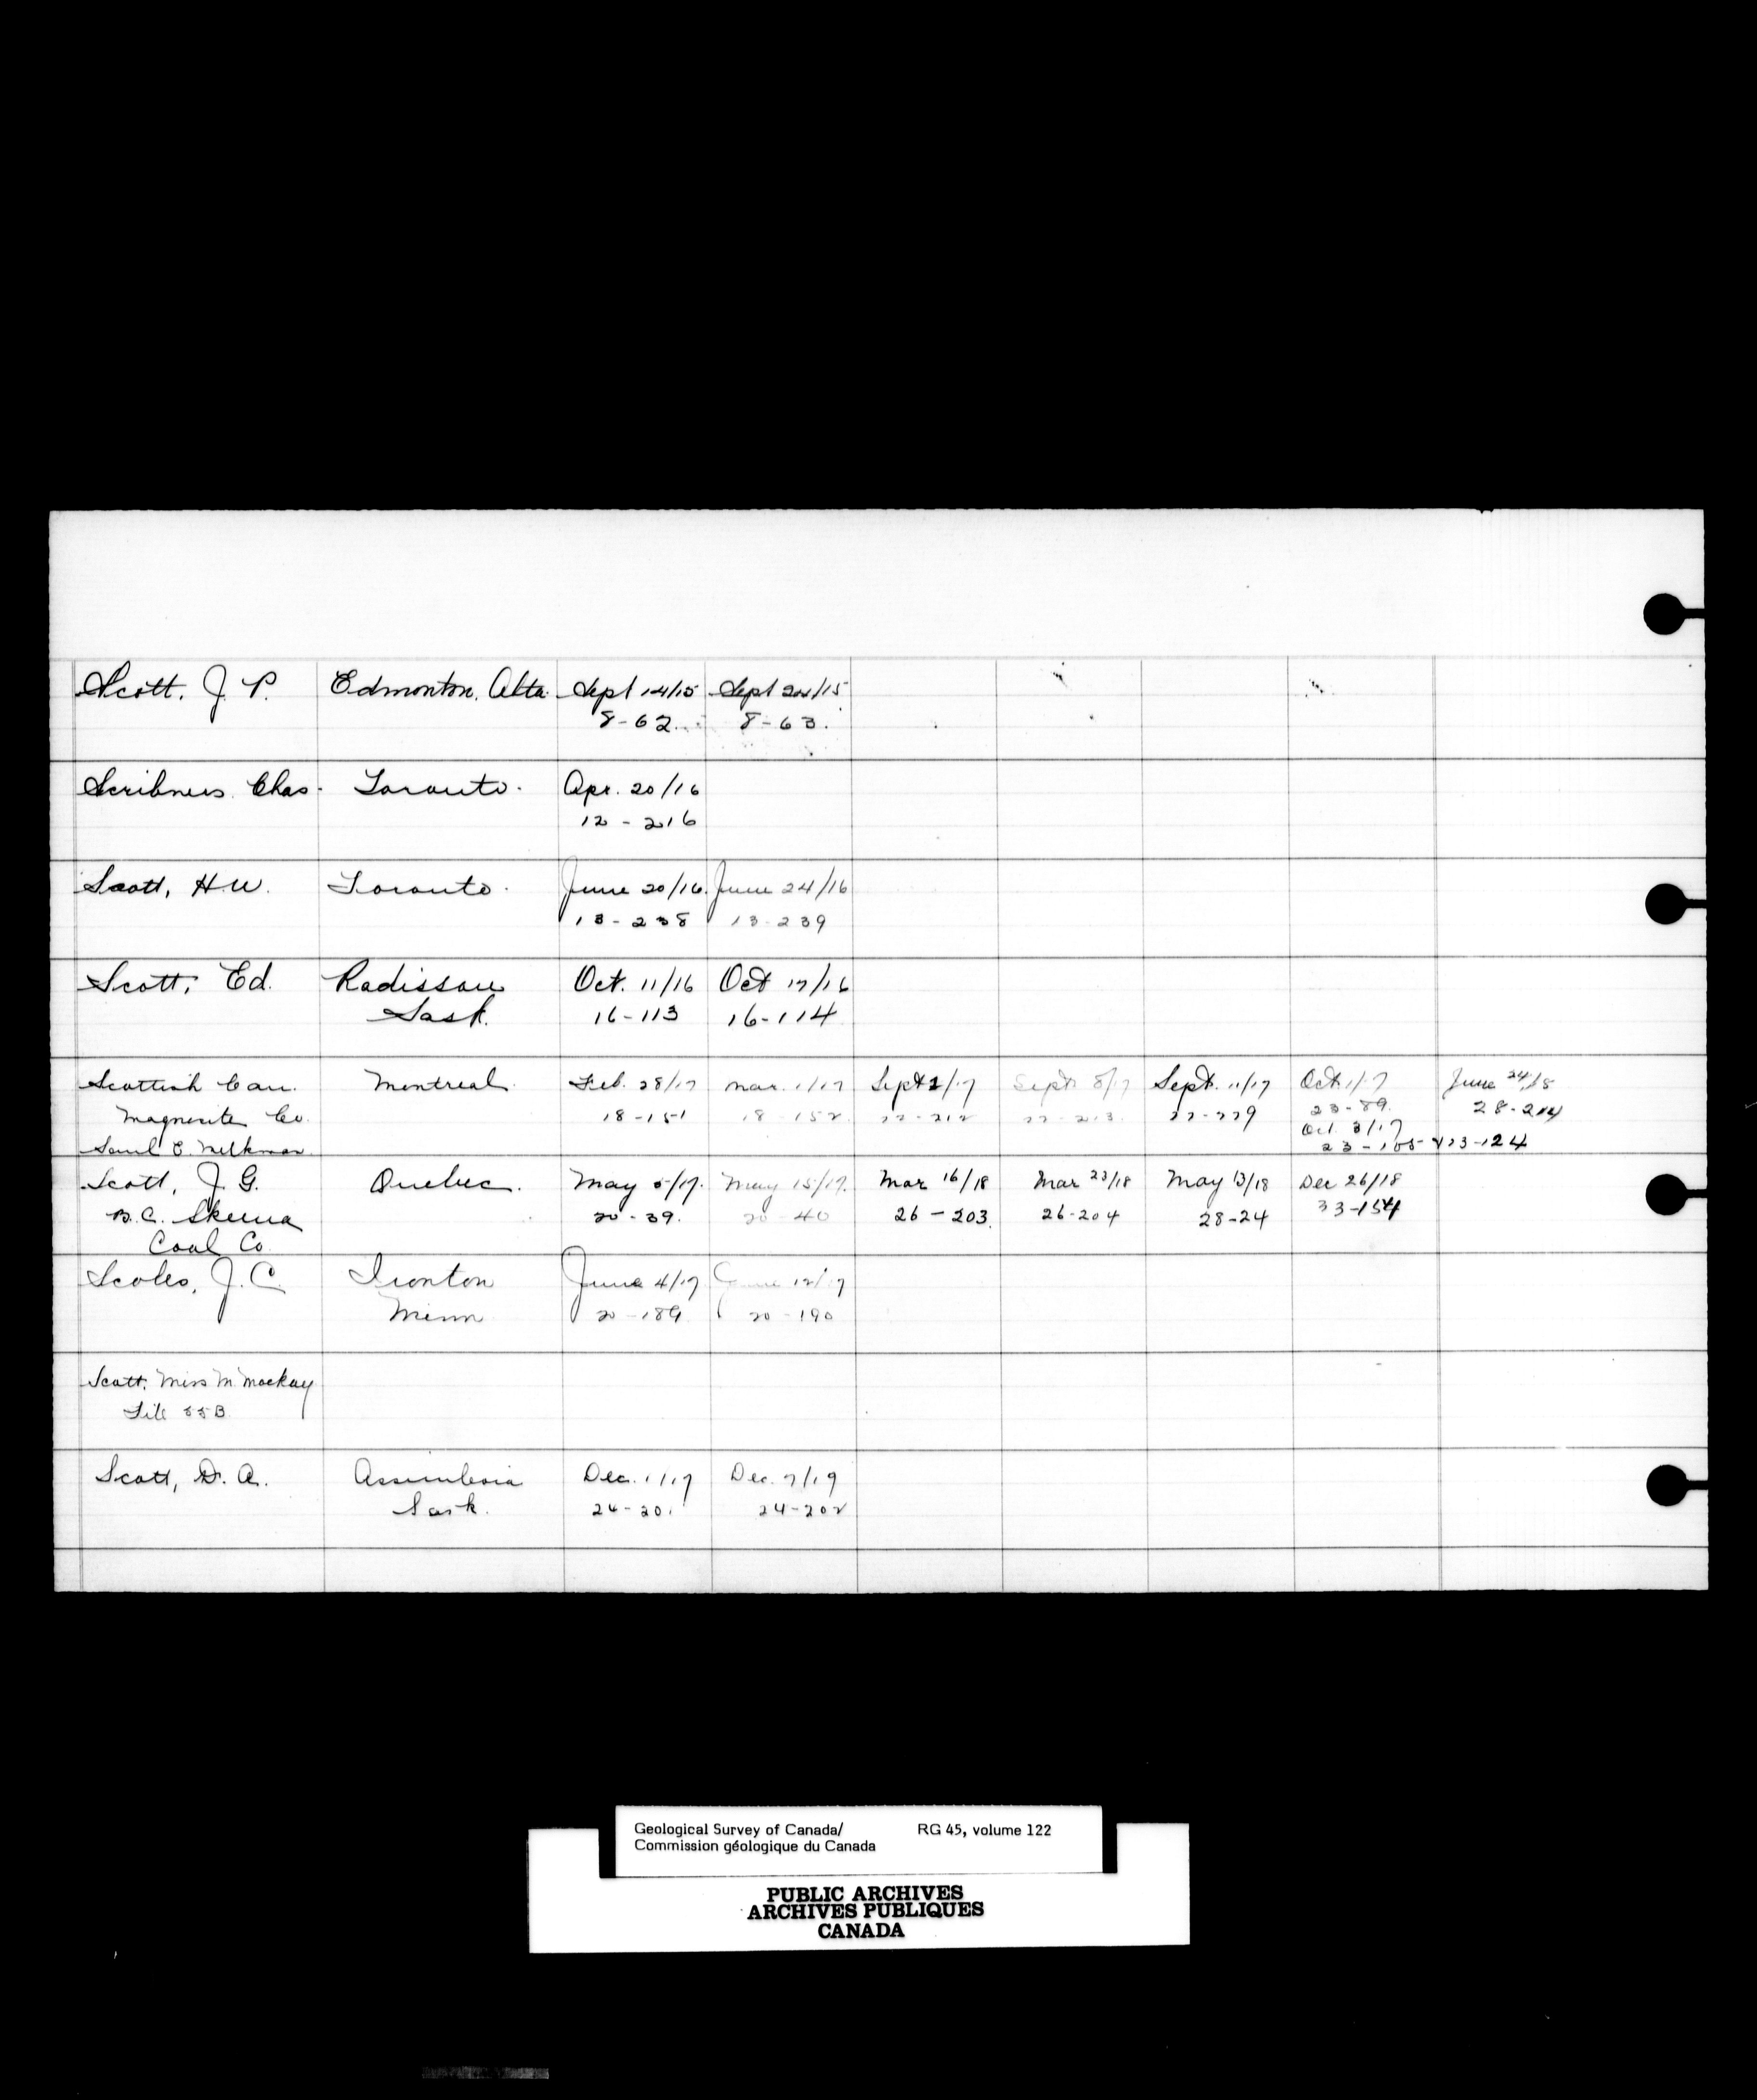 Scott, J. P. Edmonton, Alta. Sept 14/15 Sept 24/15
8-62. 8-63.
Scribners Chas. Toronto. Apr. 20/16
12 - 216
Scott, H.W. Toronto. June 20/16. June 24/16
13 - 238 13-239
Scott, Ed. Radisson Oct. 11/16 Oct 17/16
Sask. 16-113 16-114
Scottish Can. Montreal. Feb. 28/17 Mar. 1/17 Sept 1/17 Sept 8/17 Sept. 11/17 Oct. 1/17 June 24/18
Magnesite Co. 18-151 18-152 22-212 22-213. 22-229 23-89. 28-214
Oct. 3/17
Saml E. 23-105- 23-124
Scott, J. G. Quebec. May 5/17. May 15/17. Mar 16/18 Mar 23/18 May 13/18 Dec 26/18
B.C. Skeena 20-39. 20-40 26-203. 26-204 28-24 33-154
Coal Co.
Scoles, J. C. Ironton June 4/17 June 12/17
Minn 20-189 20-190
Scott, Miss M. Mackay
File 55B
Scott, D. A. Assiniboia Dec. 1/17 Dec. 7/19
Sask. 24-201 24-202
Geological Survey of Canada/ RG 45, volume 122
Commission géologique du Canada
PUBLIC ARCHIVES
ARCHIVES PUBLIQUES
CANADA